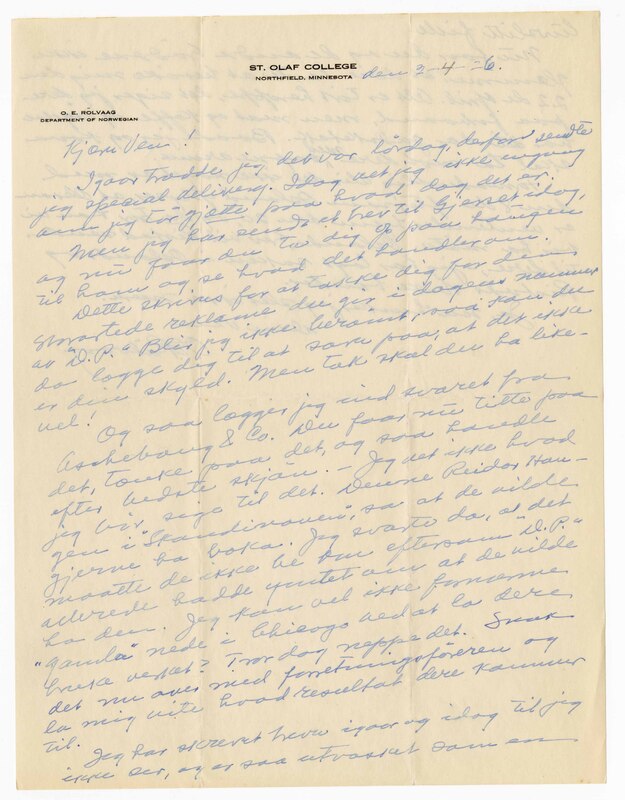 ST. OLAF COLLEGE
NORTHFIELD, MINNESOTA
den 2-4-26.
O. E. ROLVAAG
DEPARTMENT OF NORWEGIAN
Kjære Ven!
Igaar trodde jeg det var lördag, derfor sendte
jeg special delivery. Idag vet jeg ikke engang
om jeg tör gjette paa hvad dag det er.
Men jeg har sendt et brev til Gjerset idag,
og nu faar du ta dig op paa haugen
til ham og se hvad det handler om.
Dette skrives for at takke dig for den
storartede reklame du gir i dagens nummer
av "D.P." Blir jeg ikke berömt, saa kan du
da lægge dig til at sove paa, at det ikke
er din skyld. Men tak skal du ha like-
vel!
Og saa lægger jeg ind svaret fra
Aschehoug & Co. Du faar nu titte paa
det, tænke paa det, og saa handle
efter bedste skjön. — Jeg vet ikke hvad
jeg bör sige til det. Denne Reidar Hau-
gen i "Skandinaven", sa at de vilde
gjerne ha boka. Jeg svarte da, at det
maatte de ikke be om eftersom "D.P."
allerede hadde ymtet om at de vilde
ha den. Jeg kan vel ikke fornærme
"gamla" nede i Chicago ved at la dere
bruke verket? Tror dog neppe det. Snak
det nu over med forretningsföreren og
la mig vite hvad resultat dere kommer
til.
Jeg har skrevet breve igaar og idag til jeg
ikke ser, og er saa utvasket som en